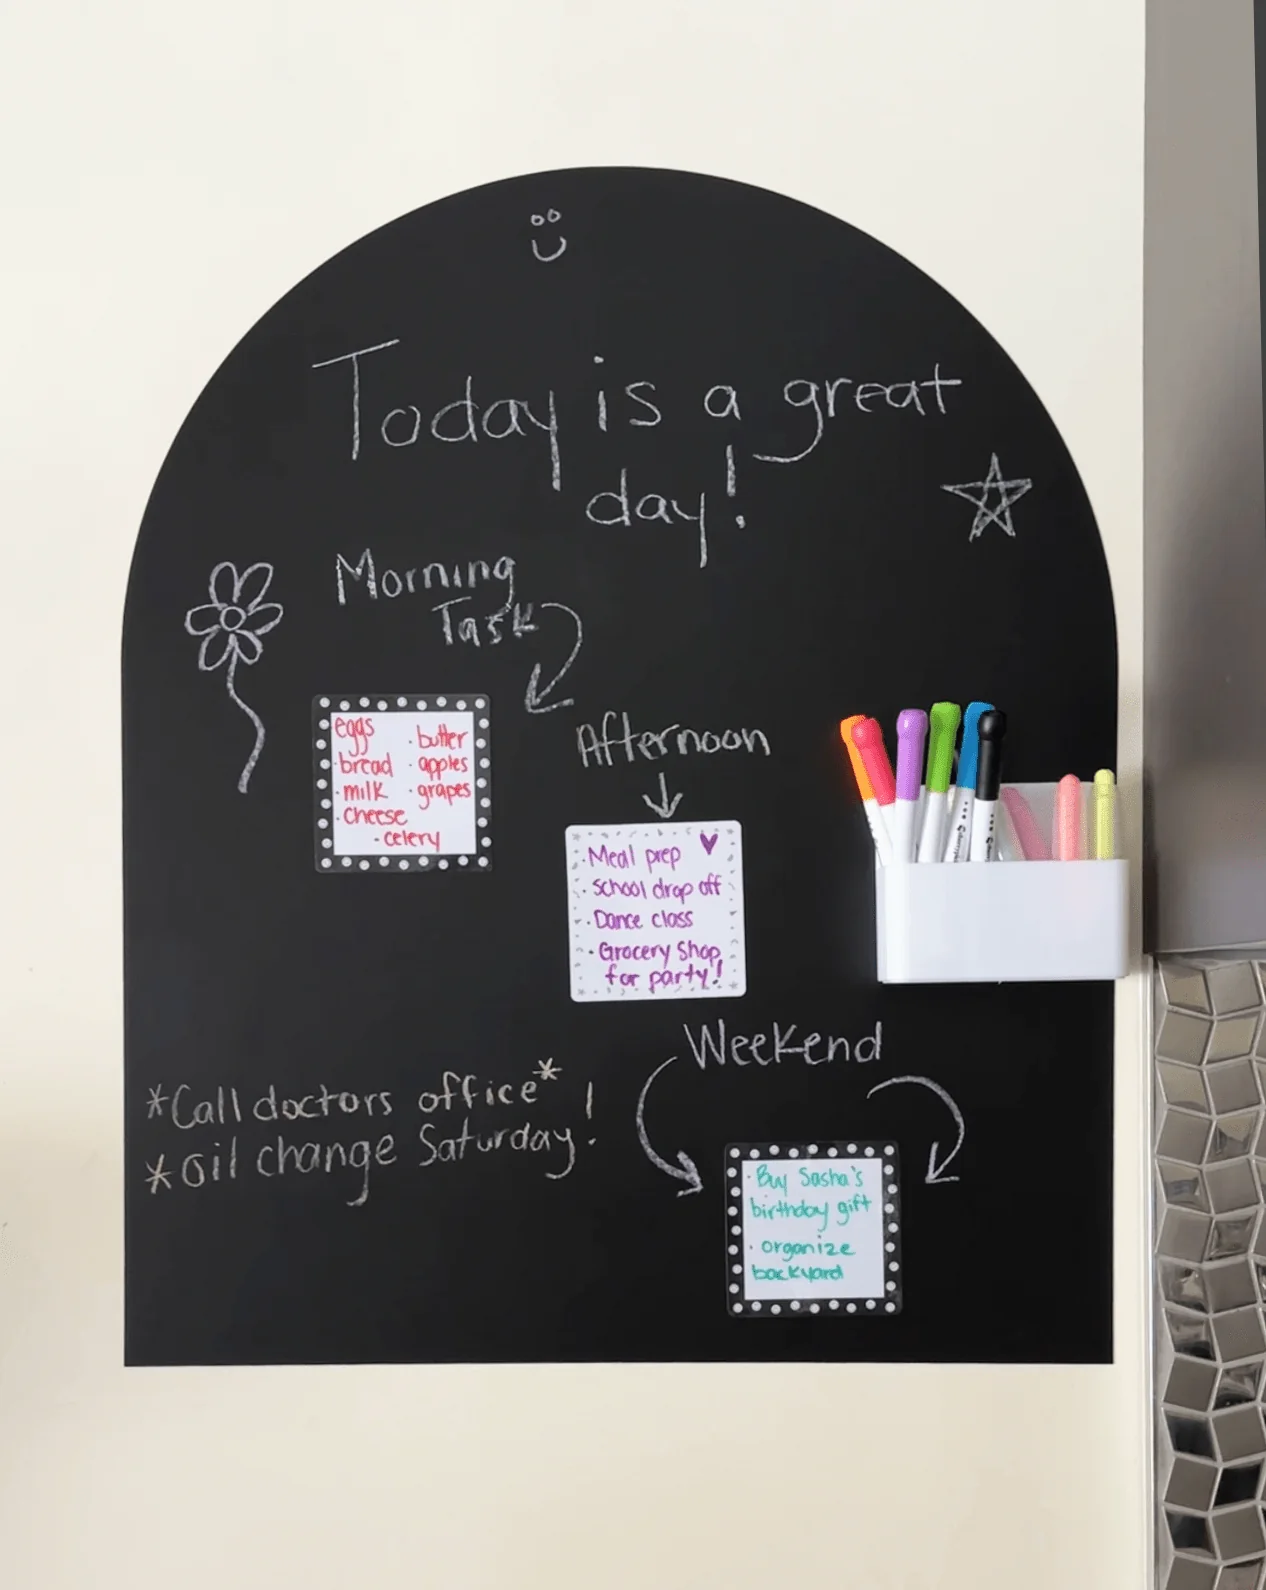 Today is a great
day!
Morning
Task
eggs
· bread
· milk
· cheese
- celery
· butter
· apples
· grapes
Afternoon
· Meal prep
· School drop off
· Dance class
· Grocery Shop
for party!
Weekend
*Call doctors office*
*Oil change Saturday!
· Buy Sasha's
birthday gift
· organize
backyard